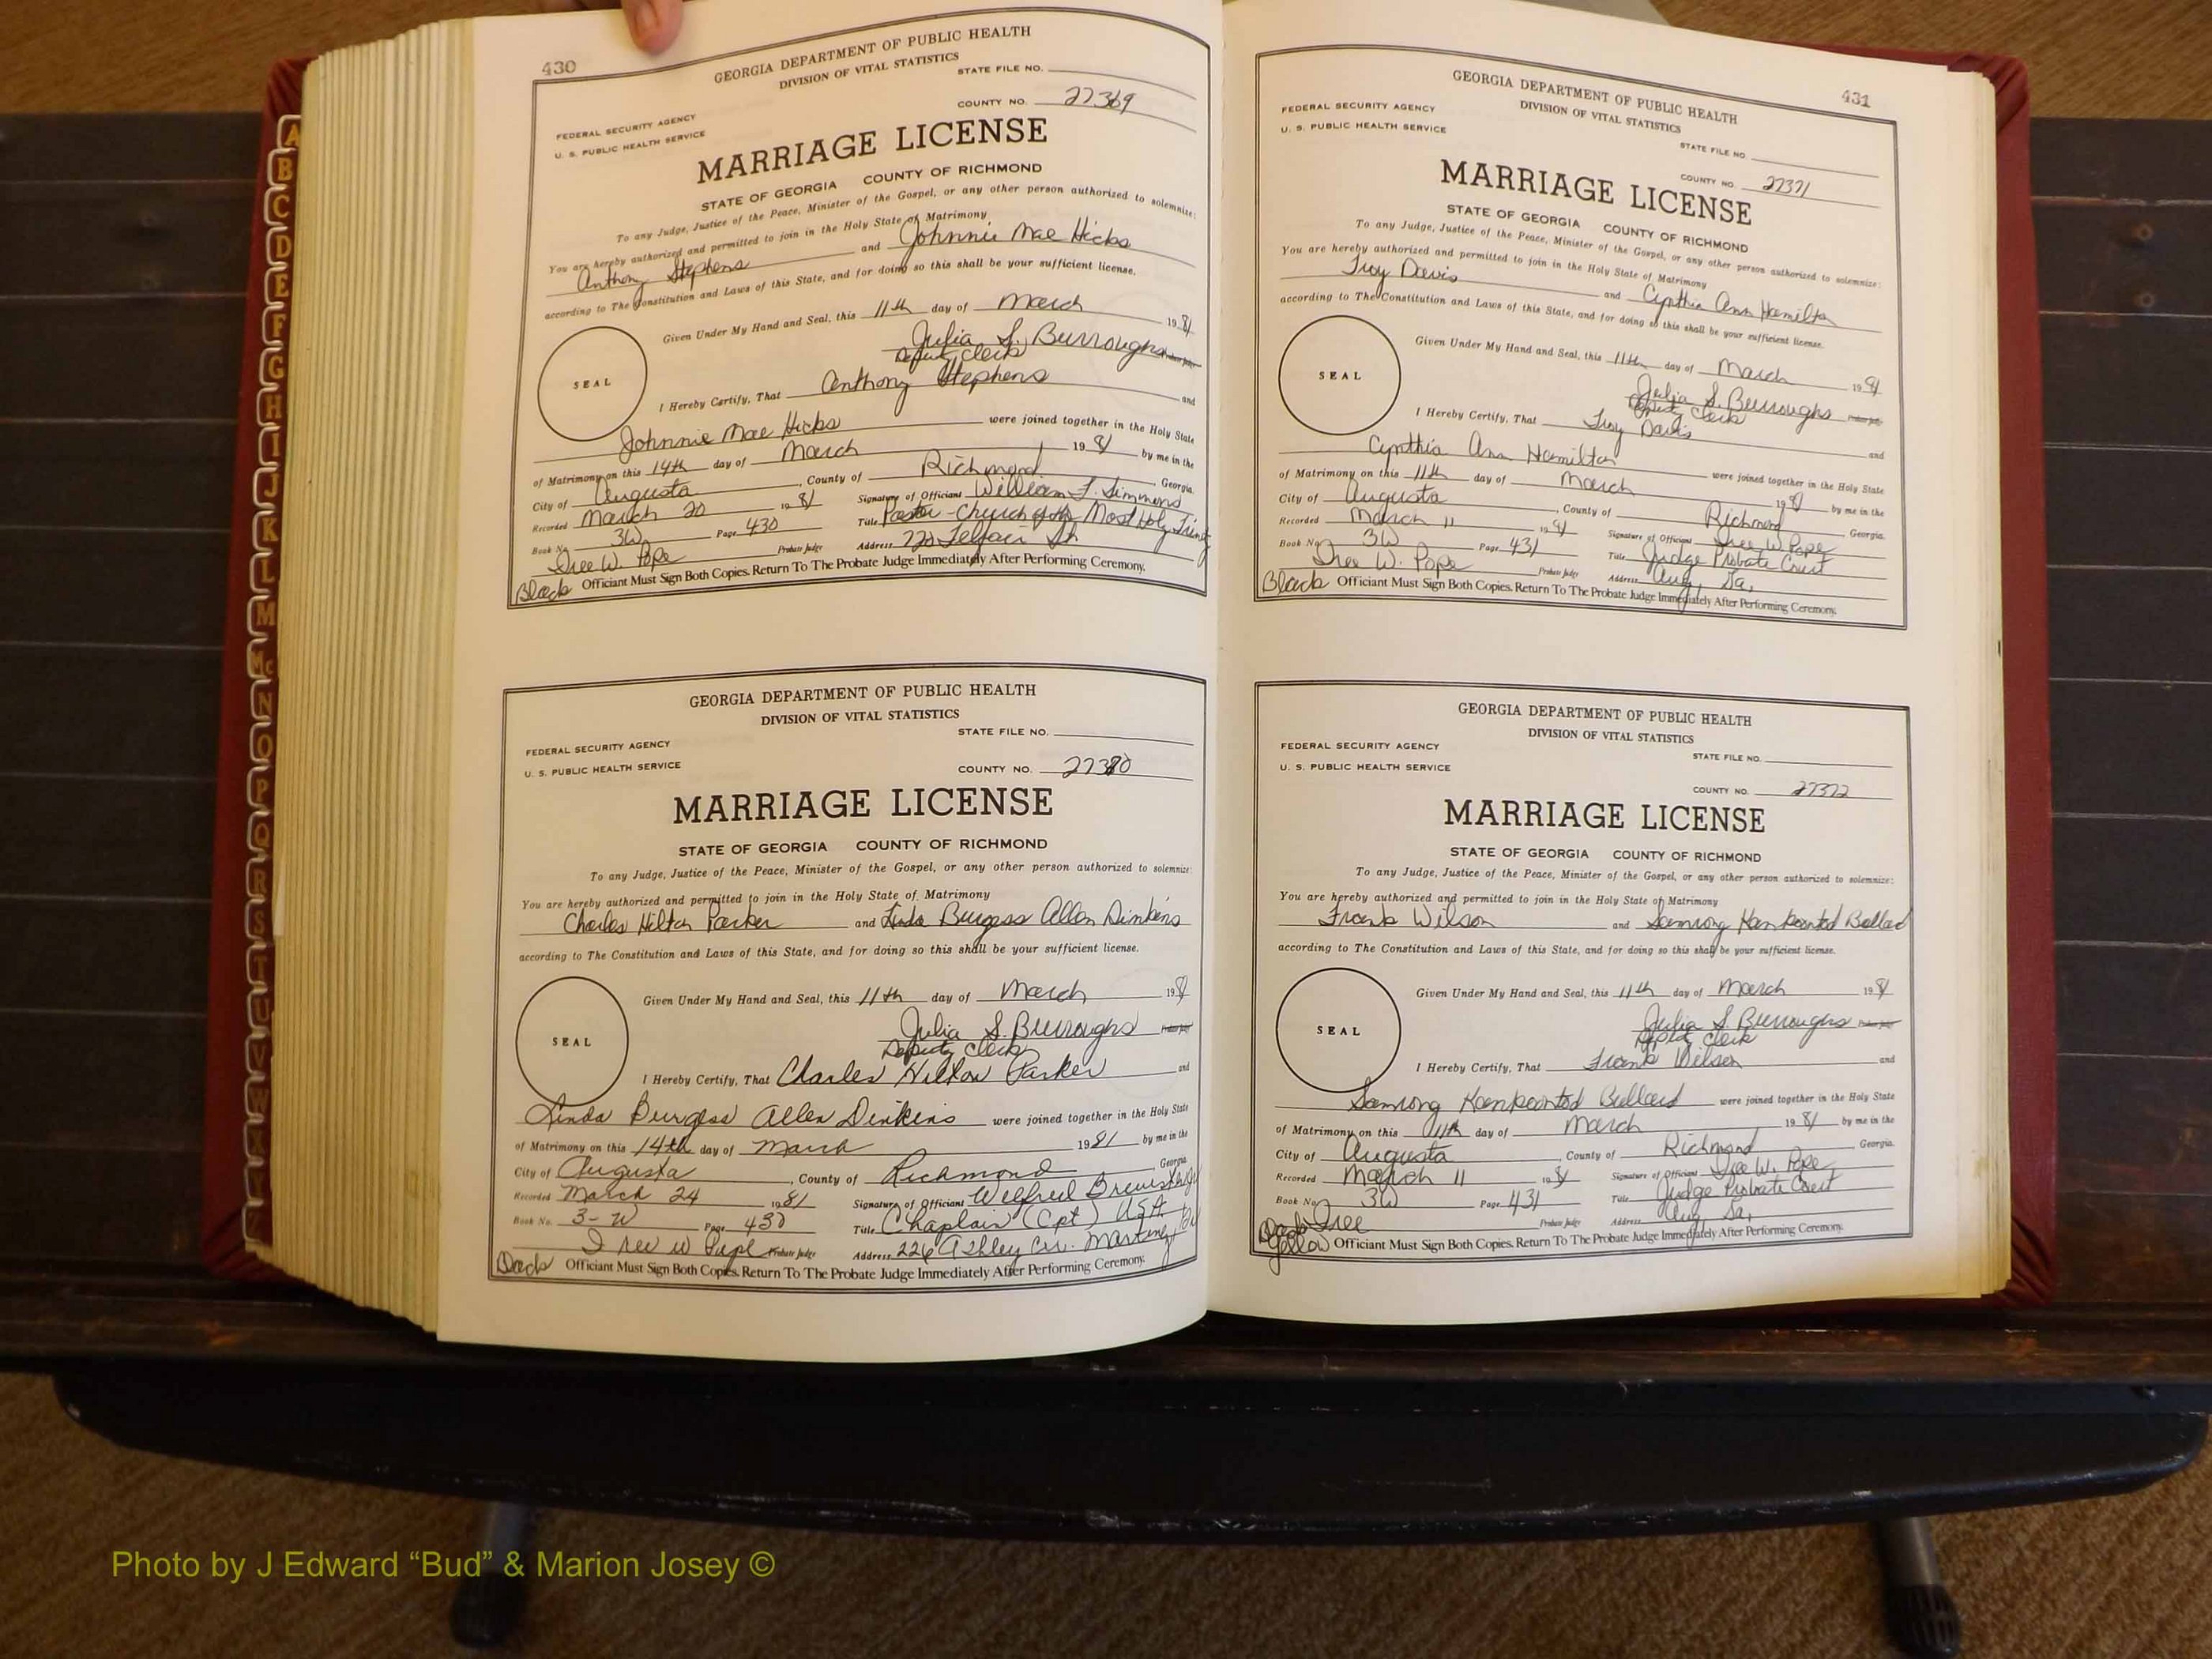 430
GEORGIA DEPARTMENT OF PUBLIC HEALTH
DIVISION OF VITAL STATISTICS
STATE FILE NO.
FEDERAL SECURITY AGENCY
U. S. PUBLIC HEALTH SERVICE
COUNTY NO. 27369
MARRIAGE LICENSE
STATE OF GEORGIA COUNTY OF RICHMOND
To any Judge, Justice of the Peace, Minister of the Gospel, or any other person authorized to solemnize:
You are hereby authorized and permitted to join in the Holy State of Matrimony
Anthony Stephens and Johnnie Mae Hicks
according to The Constitution and Laws of this State, and for doing so this shall be your sufficient license.
Given Under My Hand and Seal, this 11th day of March 1981
Julia S. Burroughs Probate Judge
Deputy Clerk
SEAL
I Hereby Certify, That Anthony Stephens and
Johnnie Mae Hicks were joined together in the Holy State
of Matrimony on this 14th day of March 1981 by me in the
City of Augusta, County of Richmond, Georgia.
Recorded March 20 1981 Signature of Officiant William F. Simmons
Book No. 3W Page 430 Title Pastor - Church of the Most Holy Trinity
Iree W. Pope Probate Judge Address 720 Telfair St.
Black Officiant Must Sign Both Copies. Return To The Probate Judge Immediately After Performing Ceremony.
GEORGIA DEPARTMENT OF PUBLIC HEALTH
DIVISION OF VITAL STATISTICS
STATE FILE NO.
FEDERAL SECURITY AGENCY
U. S. PUBLIC HEALTH SERVICE
COUNTY NO. 27380
MARRIAGE LICENSE
STATE OF GEORGIA COUNTY OF RICHMOND
To any Judge, Justice of the Peace, Minister of the Gospel, or any other person authorized to solemnize:
You are hereby authorized and permitted to join in the Holy State of Matrimony
Charles Hilton Parker and Linda Burgess Allen Dinkins
according to The Constitution and Laws of this State, and for doing so this shall be your sufficient license.
Given Under My Hand and Seal, this 11th day of March 1981
Julia S. Burroughs Probate Judge
Deputy Clerk
SEAL
I Hereby Certify, That Charles Hilton Parker and
Linda Burgess Allen Dinkins were joined together in the Holy State
of Matrimony on this 14th day of March 1981 by me in the
City of Augusta, County of Richmond Georgia
Recorded March 24 1981 Signature of Officiant Wilfred Brewster
Book No. 3-W Page 430 Title Chaplain (Cpt) USA
Iree W Pope Probate Judge Address 226 Ashley Cir. Martinez
Officiant Must Sign Both Copies. Return To The Probate Judge Immediately After Performing Ceremony.
431
GEORGIA DEPARTMENT OF PUBLIC HEALTH
DIVISION OF VITAL STATISTICS
FEDERAL SECURITY AGENCY
U. S. PUBLIC HEALTH SERVICE
STATE FILE NO.
COUNTY NO. 27371
MARRIAGE LICENSE
STATE OF GEORGIA COUNTY OF RICHMOND
To any Judge, Justice of the Peace, Minister of the Gospel, or any other person authorized to solemnize:
You are hereby authorized and permitted to join in the Holy State of Matrimony
Troy Davis and Cynthia Ann Hamilton
according to The Constitution and Laws of this State, and for doing so this shall be your sufficient license.
Given Under My Hand and Seal, this 11th day of March 1981
Julia S. Burroughs Probate Judge
Deputy Clerk
SEAL
I Hereby Certify, That Troy Davis and
Cynthia Ann Hamilton were joined together in the Holy State
of Matrimony on this 11th day of March 1981 by me in the
City of Augusta, County of Richmond Georgia.
Recorded March 11 1981 Signature of Officiant Iree W. Pope
Book No. 3W Page 431 Title Judge Probate Court
Iree W. Pope Probate Judge Address Aug, Ga,
Black Officiant Must Sign Both Copies. Return To The Probate Judge Immediately After Performing Ceremony.
GEORGIA DEPARTMENT OF PUBLIC HEALTH
DIVISION OF VITAL STATISTICS
FEDERAL SECURITY AGENCY
U. S. PUBLIC HEALTH SERVICE
STATE FILE NO.
COUNTY NO. 27372
MARRIAGE LICENSE
STATE OF GEORGIA COUNTY OF RICHMOND
To any Judge, Justice of the Peace, Minister of the Gospel, or any other person authorized to solemnize:
You are hereby authorized and permitted to join in the Holy State of Matrimony
Frank Wilson and Samrong Bullard
according to The Constitution and Laws of this State, and for doing so this shall be your sufficient license.
Given Under My Hand and Seal, this 11th day of March 1981
Julia S. Burroughs Probate Judge
Deputy Clerk
SEAL
I Hereby Certify, That Frank Wilson and
Samrong Bullard were joined together in the Holy State
of Matrimony on this 11th day of March 1981 by me in the
City of Augusta, County of Richmond Georgia.
Recorded March 11 1981 Signature of Officiant Iree W. Pope
Book No. 3W Page 431 Title Judge Probate Court
Iree Probate Judge Address Aug Ga,
Yellow Officiant Must Sign Both Copies. Return To The Probate Judge Immediately After Performing Ceremony.
A
B
C
D
E
F
G
H
I
J
K
L
M
Mc
N
O
P
Q
R
S
T
U
V
W
Photo by J Edward “Bud” & Marion Josey ©